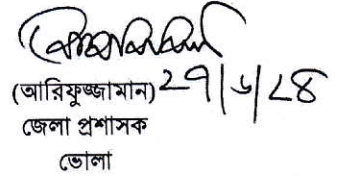 (আরিফুজ্জামান) ২৭|৬|২৪
জেলা প্রশাসক
ভোলা